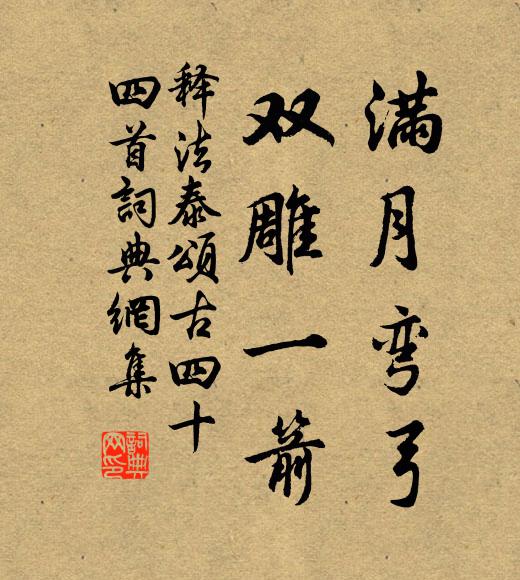 满月弯弓
双雕一箭
释法泰颂古四十
四首詞典網集
詞典网印